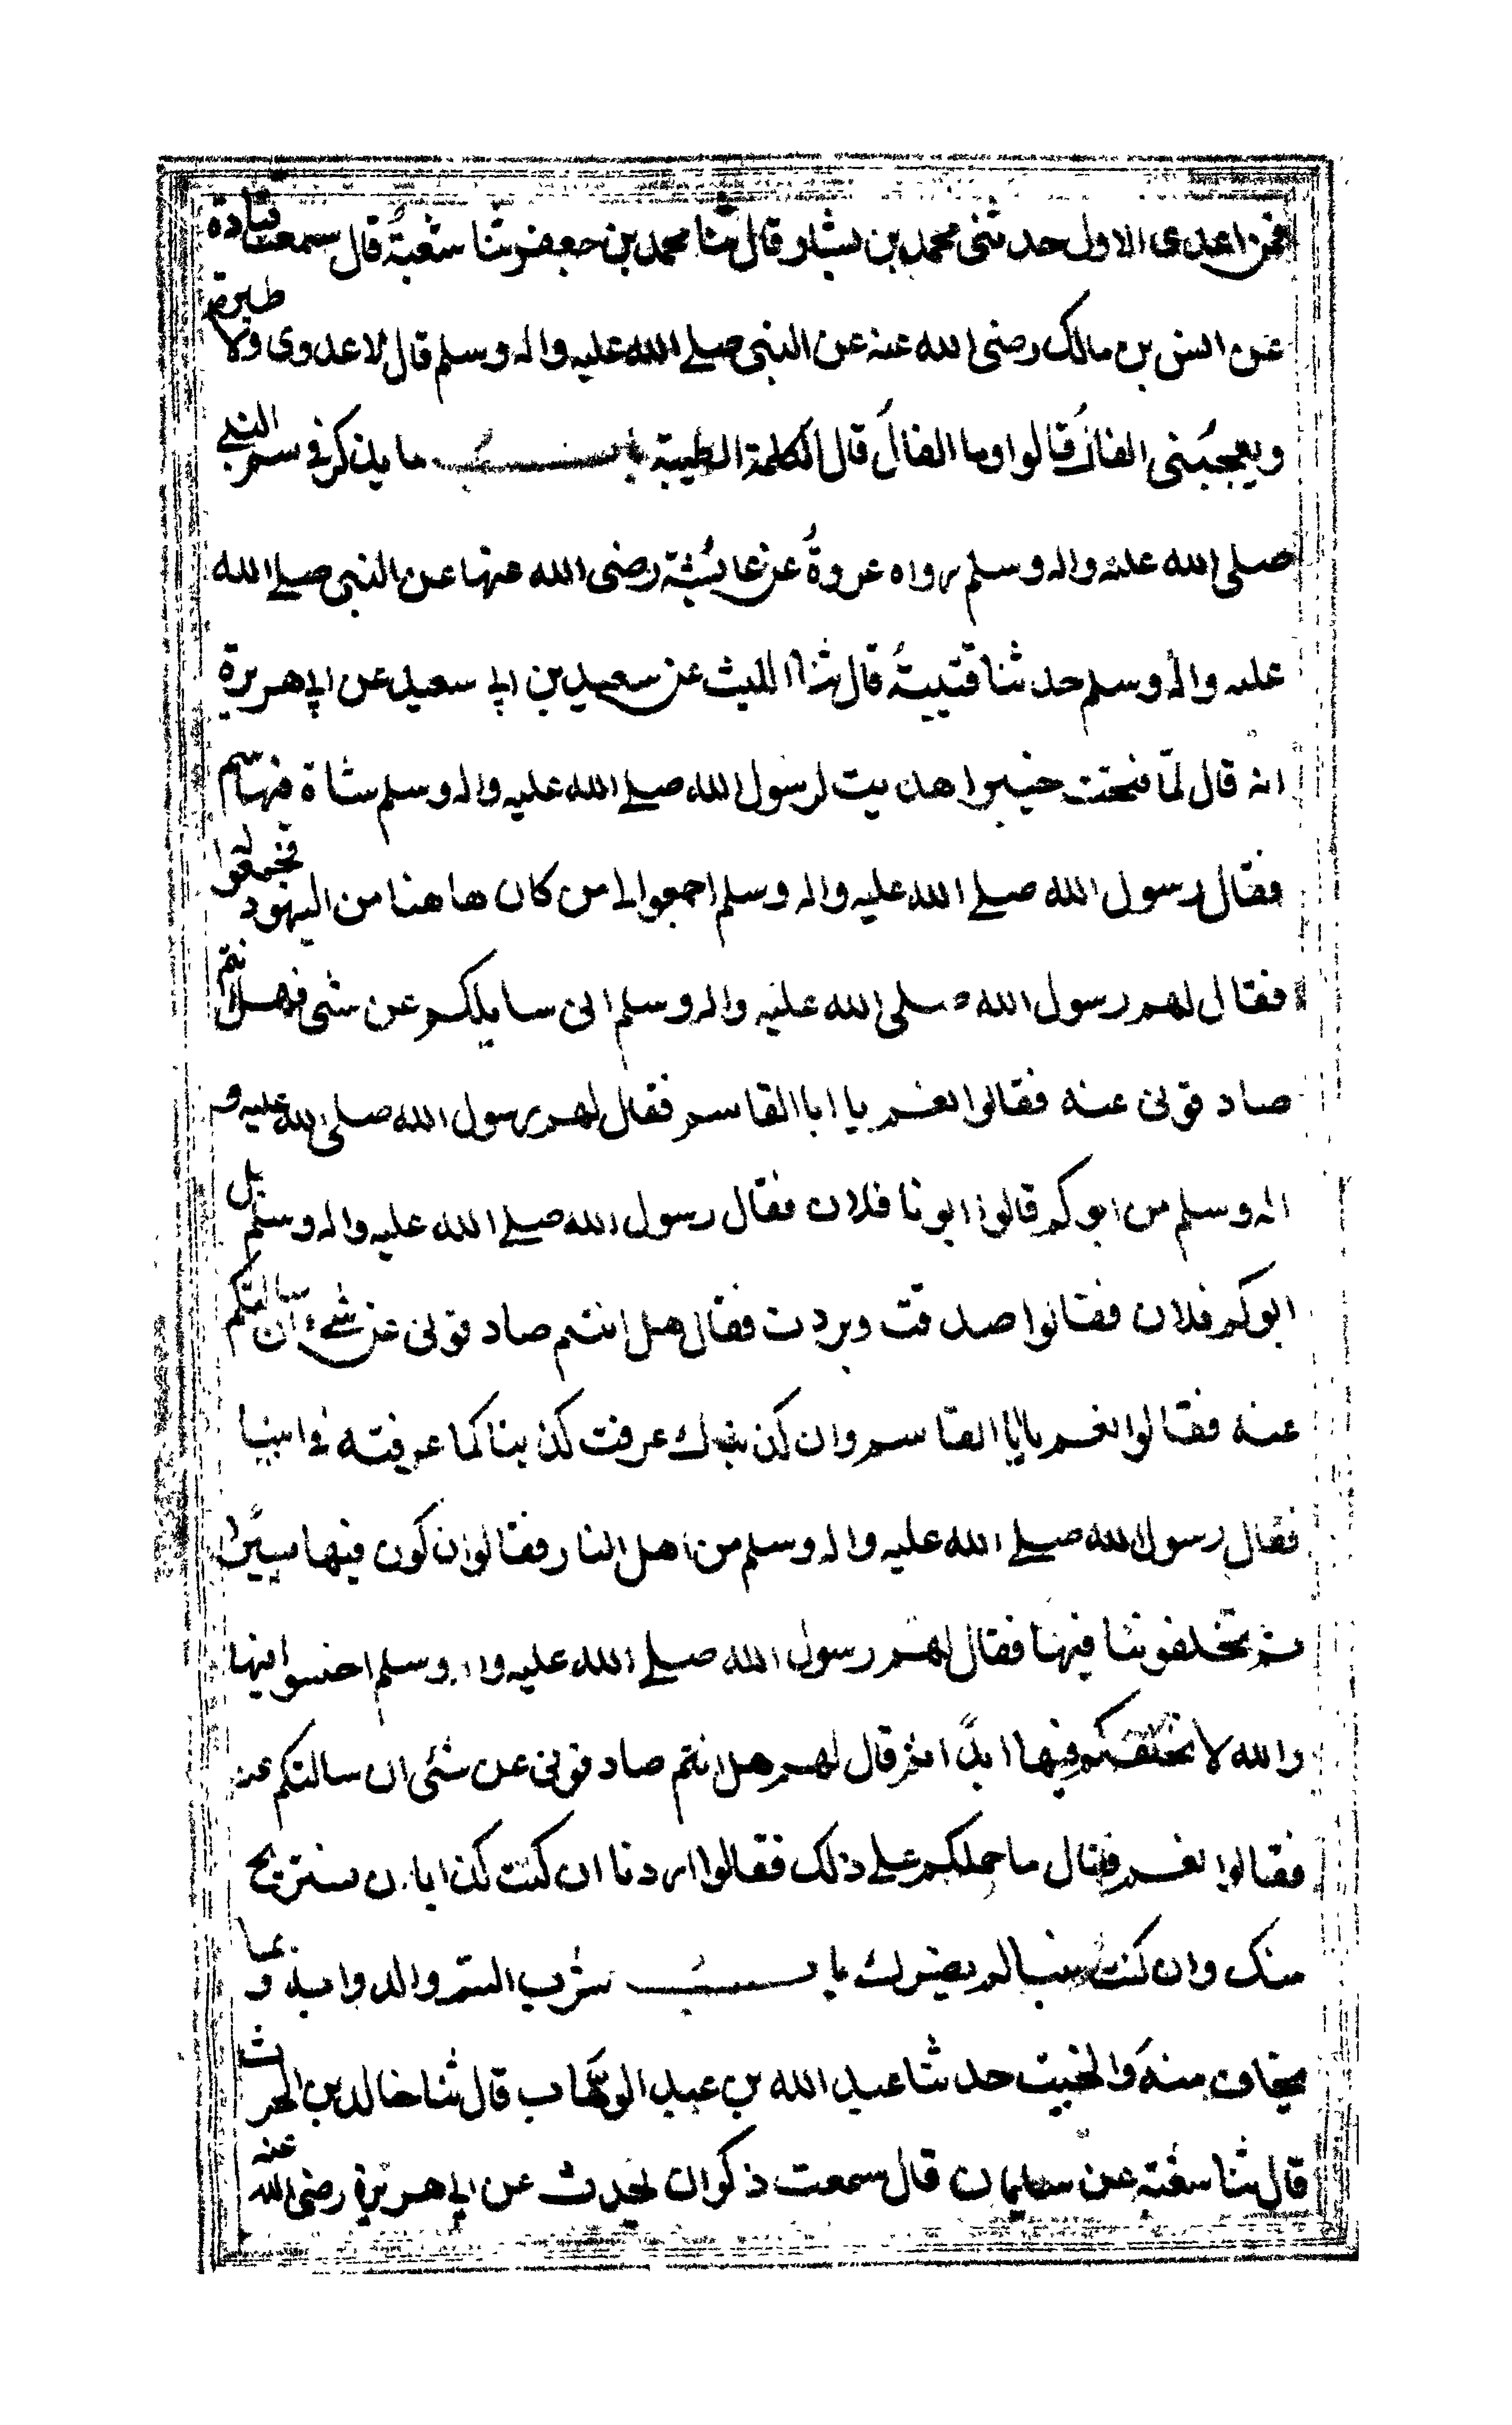 فمن اعدى الاول حدثنى محمد بن بشار قال ثنا محمد بن جعفر ثنا شعبة قال سمعت قتادة
عن انس بن مالك رضى الله عنه عن النبى صلى الله عليه واله وسلم قال لا عدوى ولا طيرة
ويعجبنى الفال قالوا وما الفال قال الكلمة الطيبة باب ما يذكر فى سم النبى
صلى الله عليه واله وسلم رواه عروة عن عايشة رضى الله عنها عن النبى صلى الله
عليه واله وسلم حدثنا قتيبة قال ثنا الليث عن سعيد بن ابى سعيد عن ابى هريرة
انه قال لما فتحت خيبر اهديت لرسول الله صلى الله عليه واله وسلم شاة فيها سم
فقال رسول الله صلى الله عليه واله وسلم اجمعوا لى من كان هاهنا من اليهود فجمعوا له
فقال لهم رسول الله صلى الله عليه واله وسلم انى سايلكم عن شى فهل انتم
صادقونى عنه فقالوا نعم يا ابا القاسم فقال لهم رسول الله صلى الله عليه و
اله وسلم من ابوكم قالوا ابونا فلان فقال رسول الله صلى الله عليه واله وسلم بل
ابوكم فلان فقالوا صدقت وبردت فقال هل انتم صادقونى عن شىء ان سالتكم
عنه فقالوا نعم يا ابا القاسم وان كذبناك عرفت كذبنا كما عرفته فى ابينا
فقال رسول الله صلى الله عليه واله وسلم من اهل النار فقالوا نكون فيها يسيرا
ثم تخلفوننا فيها فقال لهم رسول الله صلى الله عليه واله وسلم اخسوا فيها
والله لا نخلفكم فيها ابدا ثم قال لهم هل انتم صادقونى عن شئى ان سالتكم عنه
فقالوا نعم فقال ما حملكم على ذلك فقالوا اردنا ان كنت كذابا ن نستريح
منك وان كنت نبيا لم يضرك باب شرب السم والدوا به و بما
يخاف منه والخبيث حدثنا عبد الله بن عبد الوهاب قال ثنا خالد بن الحرث
قال ثنا شعبة عن سليمان قال سمعت ذكوان يحدث عن ابى هريرة رضى الله عنه